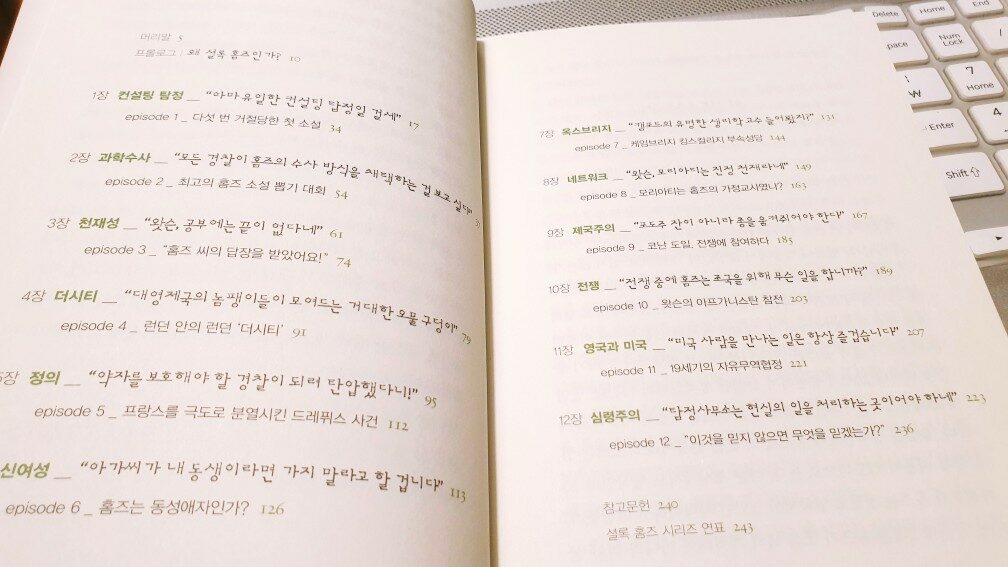 머리말 5
프롤로그 | 왜 셜록 홈즈인가? 10
1장 컨설팅 탐정 _ “아마 유일한 컨설팅 탐정일 걸세” 17
episode 1 _ 다섯 번 거절당한 첫 소설 34
2장 과학수사 _ “모든 경찰이 홈즈의 수사 방식을 채택하는 걸 보고 싶다”
episode 2 _ 최고의 홈즈 소설 뽑기 대회 54
3장 천재성 _ “왓슨, 공부에는 끝이 없다네” 61
episode 3 _ “홈즈 씨의 답장을 받았어요!” 74
4장 더시티 _ “대영제국의 놈팽이들이 모여드는 거대한 오물 구덩이” 79
episode 4 _ 런던 안의 런던 ‘더시티’ 91
5장 정의 _ “약자를 보호해야 할 경찰이 되려 탄압했다니!” 95
episode 5 _ 프랑스를 극도로 분열시킨 드레퓌스 사건 112
신여성 _ “아가씨가 내 동생이라면 가지 말라고 할 겁니다” 113
episode 6 _ 홈즈는 동성애자인가? 126
7장 옥스브리지 _ “캠포드의 유명한 생리학 교수 들어봤지?” 131
episode 7 _ 케임브리지 킹스칼리지 부속성당 144
8장 네트워크 _ “왓슨, 모리아티는 진정 천재라네” 149
episode 8 _ 모리아티는 홈즈의 가정교사였나? 163
9장 제국주의 _ “포도주 잔이 아니라 총을 움켜쥐어야 한다” 167
episode 9 _ 코난 도일, 전쟁에 참여하다 185
10장 전쟁 _ “전쟁 중에 홈즈는 조국을 위해 무슨 일을 합니까?” 189
episode 10 _ 왓슨의 아프가니스탄 참전 203
11장 영국과 미국 _ “미국 사람을 만나는 일은 항상 즐겁습니다” 207
episode 11 _ 19세기의 자유무역협정 221
12장 심령주의 _ “탐정사무소는 현실의 일을 처리하는 곳이어야 하네” 223
episode 12 _ “이것을 믿지 않으면 무엇을 믿겠는가?” 236
참고문헌 240
셜록 홈즈 시리즈 연표 243
Delete Home End
Num Lock /
W 7 Home
Enter 4
Shift